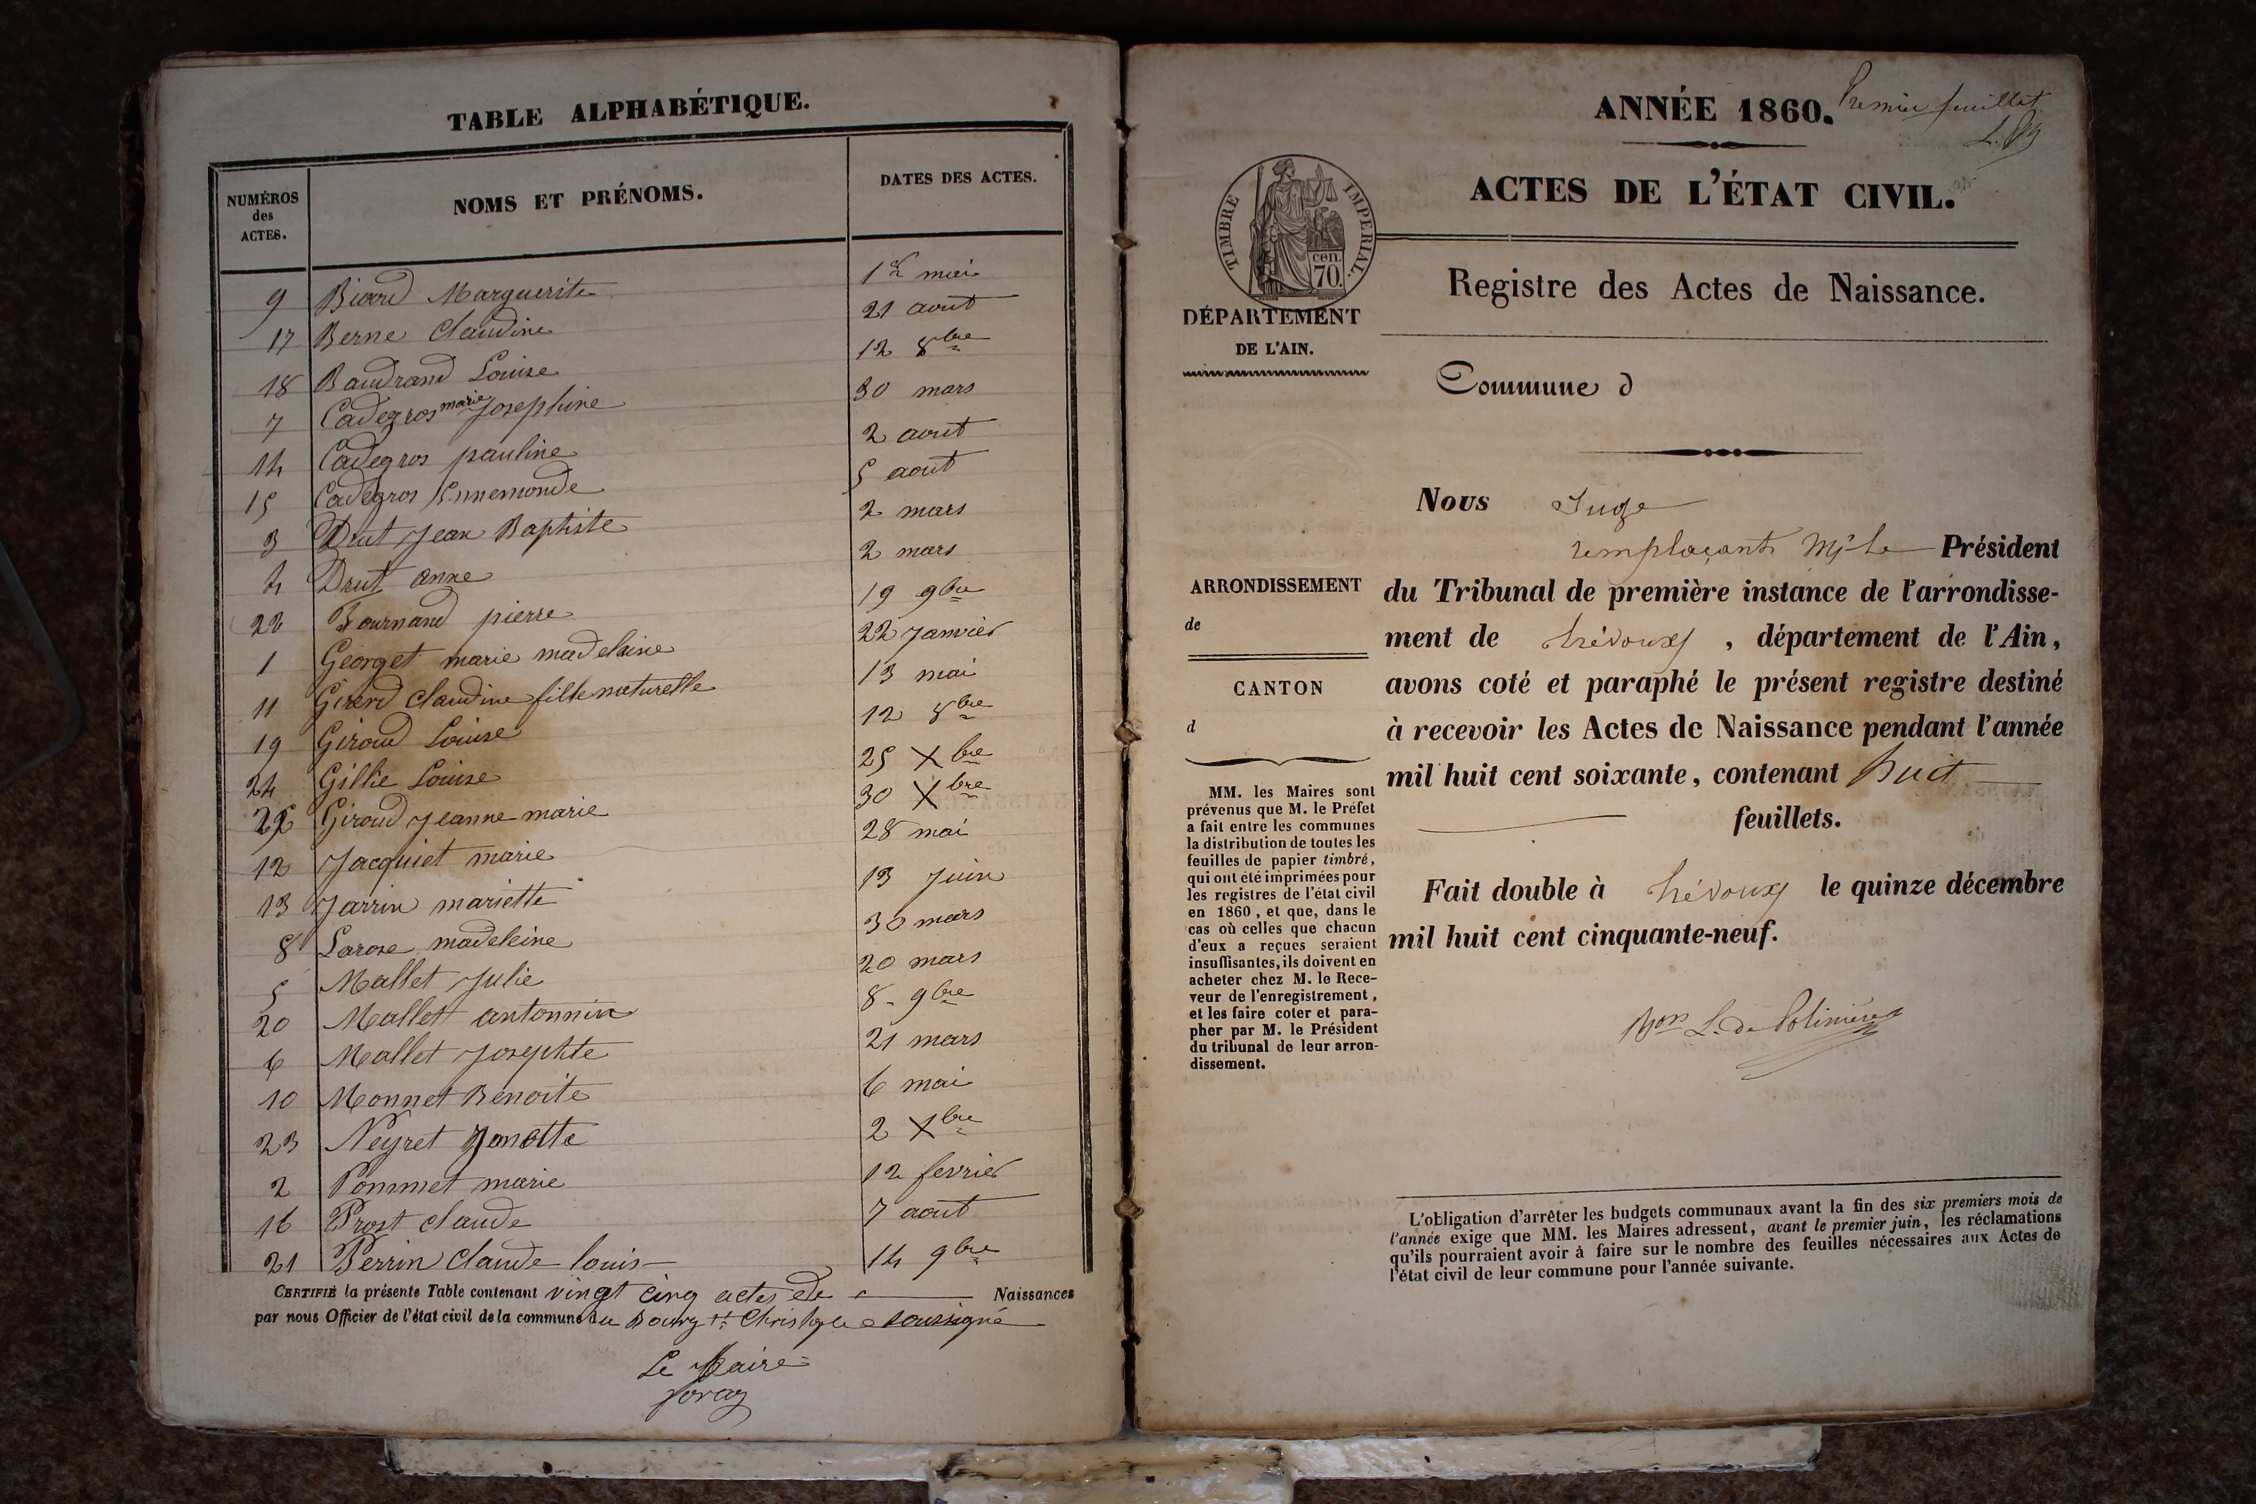 TABLE ALPHABÉTIQUE.
NUMÉROS des ACTES.
NOMS ET PRÉNOMS.
DATES DES ACTES.
9 Marguerite 1er mai
17 Berne Claudine 21 aout
18 Baudrand Louise 12 8bre
7 Cadegros marie Josephine 30 mars
14 Cadegros pauline 2 aout
15 Cadegros Ennemonde 5 aout
3 Drut Jean Baptiste 2 mars
4 Drut anne 2 mars
22 Fournand pierre 19 9bre
1 Georget marie madelaine 22 Janvier
11 Girerd Claudine fille naturelle 13 mai
19 Giroud Louise 12 8bre
24 Gillie Louise 25 Xbre
25 Giroud Jeanne marie 30 Xbre
12 Jacquiet marie 28 mai
13 Jarrin mariette 13 Juin
8 Larose madeleine 30 mars
5 Mallet Julie 20 mars
20 Mallet antonnin 8 9bre
6 Mallet Josephte 21 mars
10 Monnet Benoite 6 mai
23 Neyret 2 Xbre
2 Pommet marie 12 fevrier
16 Prost claude 7 aout
21 Perrin Claude louis 14 9bre
CERTIFIÉ la présente Table contenant vingt cinq actes de Naissances
par nous Officier de l'état civil de la commune du Bourg St Christophe soussigné
Le Maire
ANNÉE 1860.
Premier feuillet
ACTES DE L'ÉTAT CIVIL.
TIMBRE IMPERIAL.
cen. 70.
DÉPARTEMENT
DE L'AIN.
Registre des Actes de Naissance.
Commune d
Nous Juge
remplaçant Mr le Président
du Tribunal de première instance de l'arrondisse-
ment de Trévoux, département de l'Ain,
avons coté et paraphé le présent registre destiné
à recevoir les Actes de Naissance pendant l'année
mil huit cent soixante, contenant huit
feuillets.
Fait double à Trévoux le quinze décembre
mil huit cent cinquante-neuf.
Bon L. de Polinière
ARRONDISSEMENT
de
CANTON
d
MM. les Maires sont
prévenus que M. le Préfet
a fait entre les communes
la distribution de toutes les
feuilles de papier timbré,
qui ont été imprimées pour
les registres de l'état civil
en 1860, et que, dans le
cas où celles que chacun
d'eux a reçues seraient
insuffisantes, ils doivent en
acheter chez M. le Rece-
veur de l'enregistrement,
et les faire coter et para-
pher par M. le Président
du tribunal de leur arron-
dissement.
L'obligation d'arrêter les budgets communaux avant la fin des six premiers mois de
l'année exige que MM. les Maires adressent, avant le premier juin, les réclamations
qu'ils pourraient avoir à faire sur le nombre des feuilles nécessaires aux Actes de
l'état civil de leur commune pour l'année suivante.